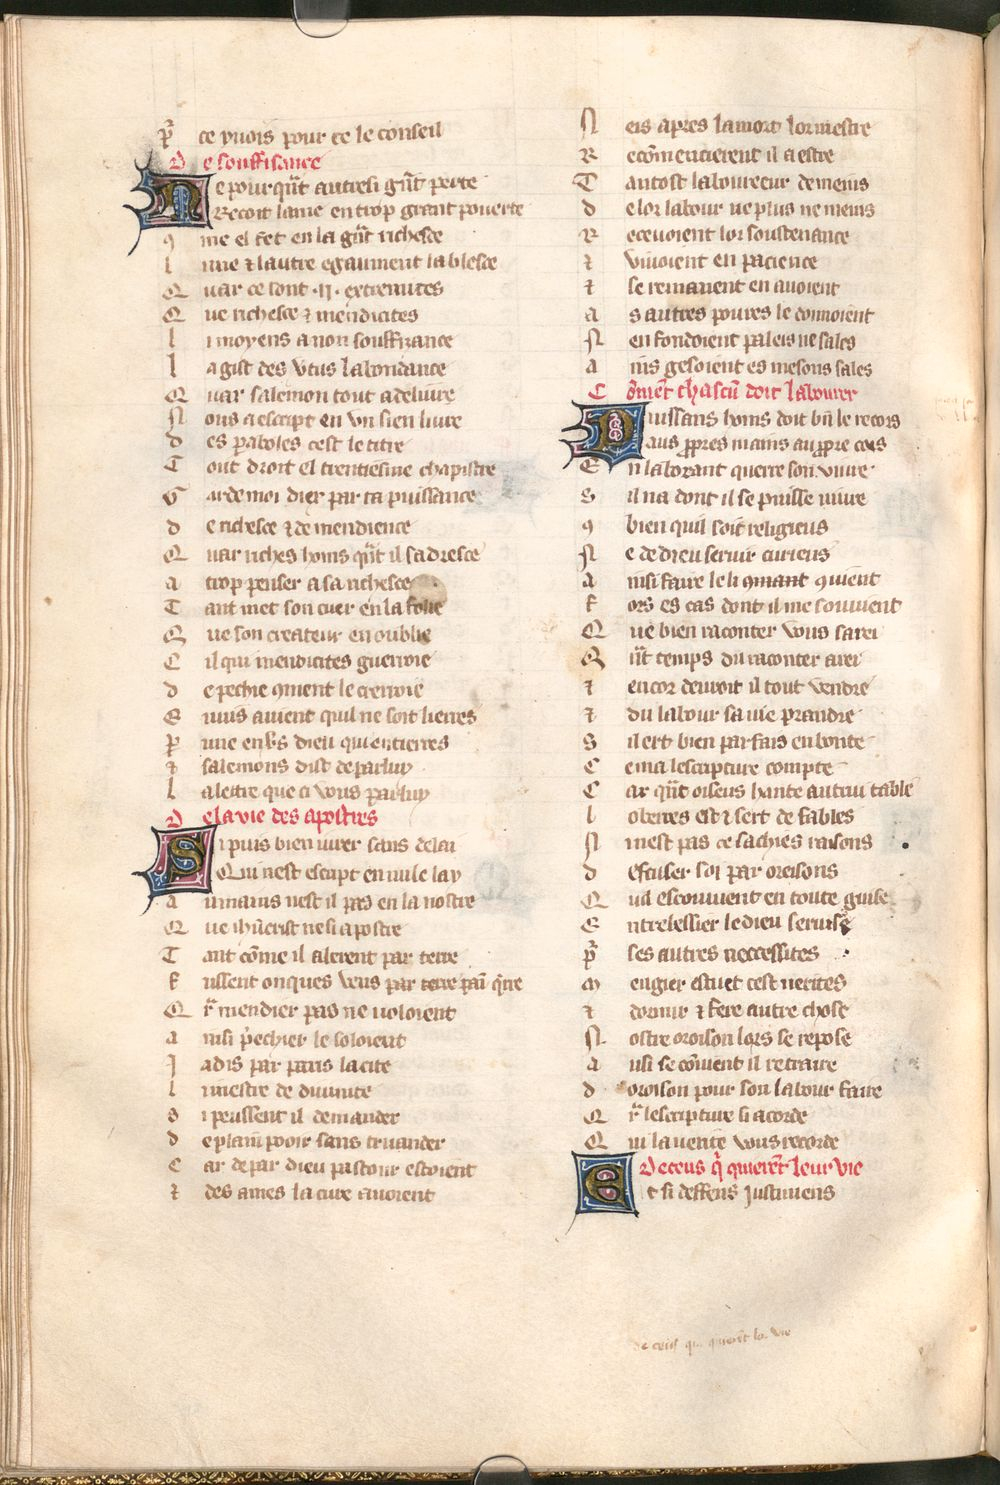 p̄ ce vuois pour ce le conseil
De souffisance
Ne pourqūt autresi gūt perte
Recoit lame en trop grant pouerte
9me el fet en la gūt richesce
lune ⁊ lautre egaument la blesce
Quar ce sont ·ii· extremites
Que richesce ⁊ mendicites
li moyens a non souffizance
la gist des v̄tus labondance
Quar salemon tout a deliure
Nous a escript en vn sien liure
des paboles cest le titre
Tout droit el trentiesme chapistre
Garde moi dier par ta puissance
de richesce ⁊ de mendience
Quar riches homs qūt il sadresce
a trop penser a sa richesce
Tant met son cuer en la folie
Que son createur en oublie
Cil qui mendicites guerroie
de pechie 9ment le crerroie
Enuis auient quil ne soit lierres
p̄iure enūs dieu qui entierres
⁊ salemons dist de par luy
la lettre que ci vous par luy
De la vie des apostres
Si puis bien iurer sans delai
Qui nest escript en nule lay
a umains nest il pas en la nostre
Que ih̄ucrist ne si apostre
Tant cōme il alerent par terre
fussent onques veus par terre pain q̄rre
Qr̄ mendier pas ne uoloient
ainsi p̄echier le soloient
Jadis par paris la cite
li mestre de diuinite
si peussent il demander
de plain pooir sans truander
Car de par dieu pastour estoient
⁊ des ames la cure auoient
Neis apres la mort lor mestre
Recōmencierent il a estre
Tantost laboureeur de mains
de lor labour ne plus ne mains
Receuoient lor soustenance
⁊ viuoient en pacience
⁊ se remanent en auoient
as autres poures le donnoient
Nen fondoient palais ne sales
ains gesoient es mesons sales
Cōmēt chascū doit labourer
Puissans homs doit bn̄ le recors
aus ppres mains au ppre cors
En laborant querre son viure
Sil na dont il se puisse uiure
9bien quil soit religieus
Ne de dieu seruir curieus
ainsi faire le li 9mant 9uient
fors es cas dont il me souuient
Que bien raconter vous sarei
Qūt temps du raconter arei
⁊ encor deuroit il tout vendre
⁊ du labour sa uie prandre
Sil ert bien parfais en bonte
Ce ma lescripture compte
Car qūt oiseus hante autrui table
lobeires est ⁊ sert de fables
Ninest pas ce sachies raisons
descuser soi par oroisons
Quil escouuient en toute guise
Entrelessier le dieu seruise
p̄ ses autres neccessites
Mengier estuet cest uerites
⁊ dormir ⁊ fere autre chose
Nostre oroison lors se repose
ausi se cōuient il retraire
doroison pour son labour faire
Qr̄ lescripture si acorde
Qui la uerite vous recorde
De ceus q̄ quierēt leur vie
Et si deffens iustiniens
de ceus qui quierēt lor vie